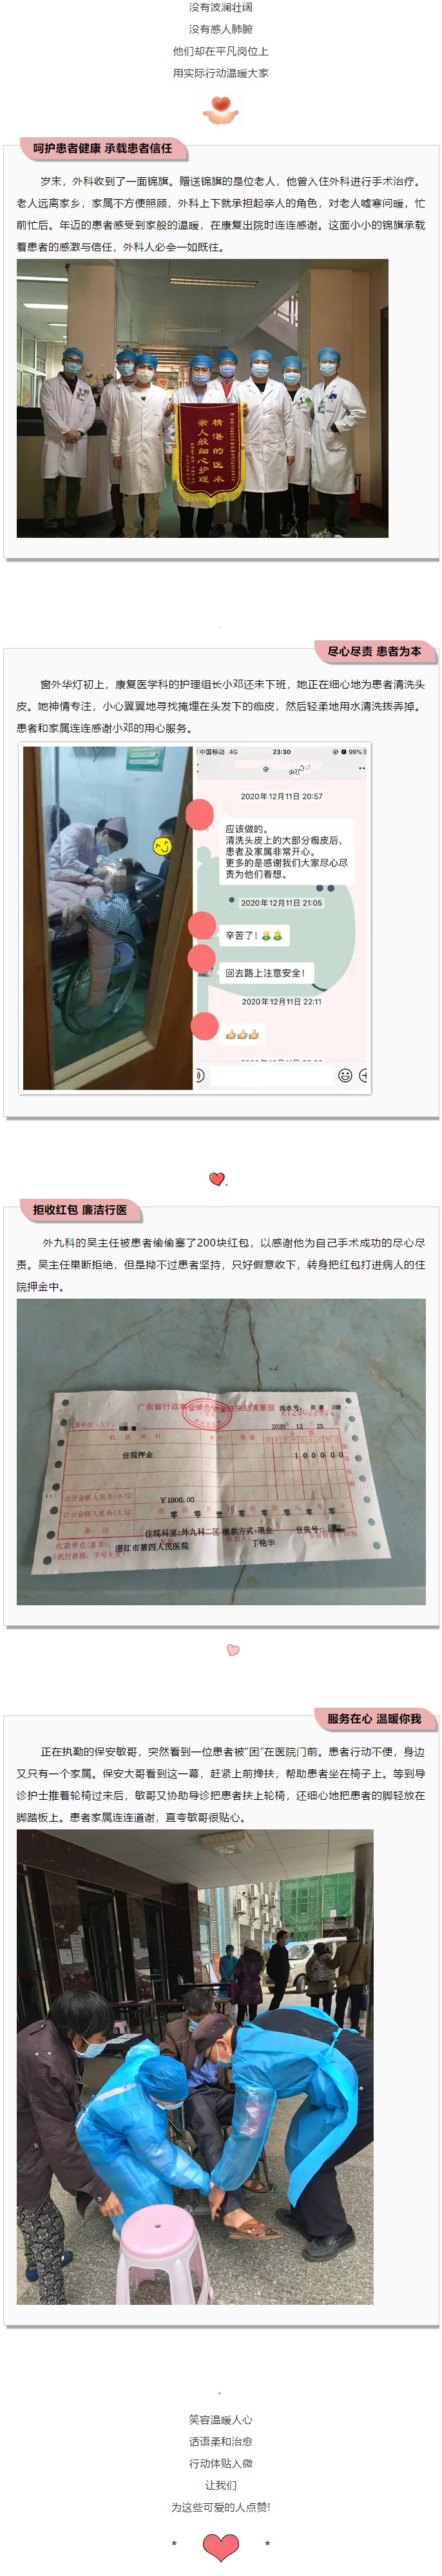 没有波澜壮阔
没有感人肺腑
他们却在平凡岗位上
用实际行动温暖大家
呵护患者健康 承载患者信任
岁末，外科收到了一面锦旗。赠送锦旗的是位老人，他曾入住外科进行手术治疗。
老人远离家乡，家属不方便照顾，外科上下就承担起亲人的角色，对老人嘘寒问暖，忙
前忙后。年迈的患者感受到家般的温暖，在康复出院时连连感谢。这面小小的锦旗承载
着患者的感激与信任，外科人必会一如既往。
精湛的医术
亲人般细心护理
尽心尽责 患者为本
窗外华灯初上，康复医学科的护理组长小邓还未下班，她正在细心地为患者清洗头
皮。她神情专注，小心翼翼地寻找掩埋在头发下的痂皮，然后轻柔地用水清洗拨弄掉。
患者和家属连连感谢小邓的用心服务。
中国移动 4G 23:30 99%
2020年12月11日 20:57
应该做的。
清洗头皮上的大部分痂皮后，
患者及家属非常开心。
更多的是感谢我们大家尽心尽
责为他们着想。
2020年12月11日 21:05
辛苦了！
回去路上注意安全！
2020年12月11日 22:11
拒收红包 廉洁行医
外九科的吴主任被患者偷偷塞了200块红包，以感谢他为自己手术成功的尽心尽
责。吴主任果断拒绝，但是拗不过患者坚持，只好假意收下，转身把红包打进病人的住
院押金中。
广东省行政事业单位资金往来结算票据
2020 12 25
住院押金
1 0 0 0 0 0
合计金额人民币(小写) ¥1000.00
合计金额人民币(大写)
备 注 住院科室:外九科二区 缴款方式:现金 住院号:
收款单位(盖章): 湛江市第四人民医院 收款人: 丁艳华
(机打票据，手写无效)
服务在心 温暖你我
正在执勤的保安敏哥，突然看到一位患者被“困”在医院门前。患者行动不便，身边
又只有一个家属。保安大哥看到这一幕，赶紧上前搀扶，帮助患者坐在椅子上。等到导
诊护士推着轮椅过来后，敏哥又协助导诊把患者扶上轮椅，还细心地把患者的脚轻放在
脚踏板上。患者家属连连道谢，直夸敏哥很贴心。
笑容温暖人心
话语柔和治愈
行动体贴入微
让我们
为这些可爱的人点赞!